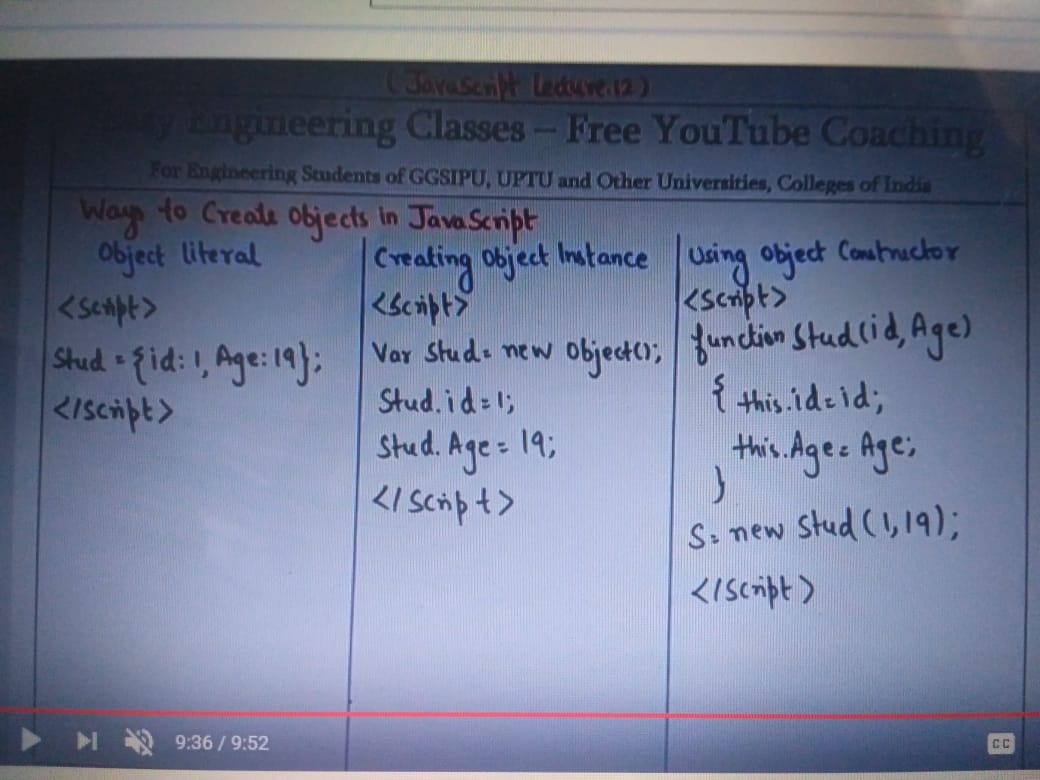 (JavaScript Lecture:12)
Easy Engineering Classes – Free YouTube Coaching
For Engineering Students of GGSIPU, UPTU and Other Universities, Colleges of India
Ways to Create Objects in JavaScript
Object literal
<Script>
Stud = {id: 1, Age: 19};
</Script>
Creating Object Instance
<Script>
Var Stud = new Object();
Stud.id = 1;
Stud. Age = 19;
</Script>
Using Object Constructor
<Script>
function Stud(id, Age)
{ this.id = id;
this.Age = Age;
}
S = new Stud (1, 19);
</Script>
9:36 / 9:52
CC